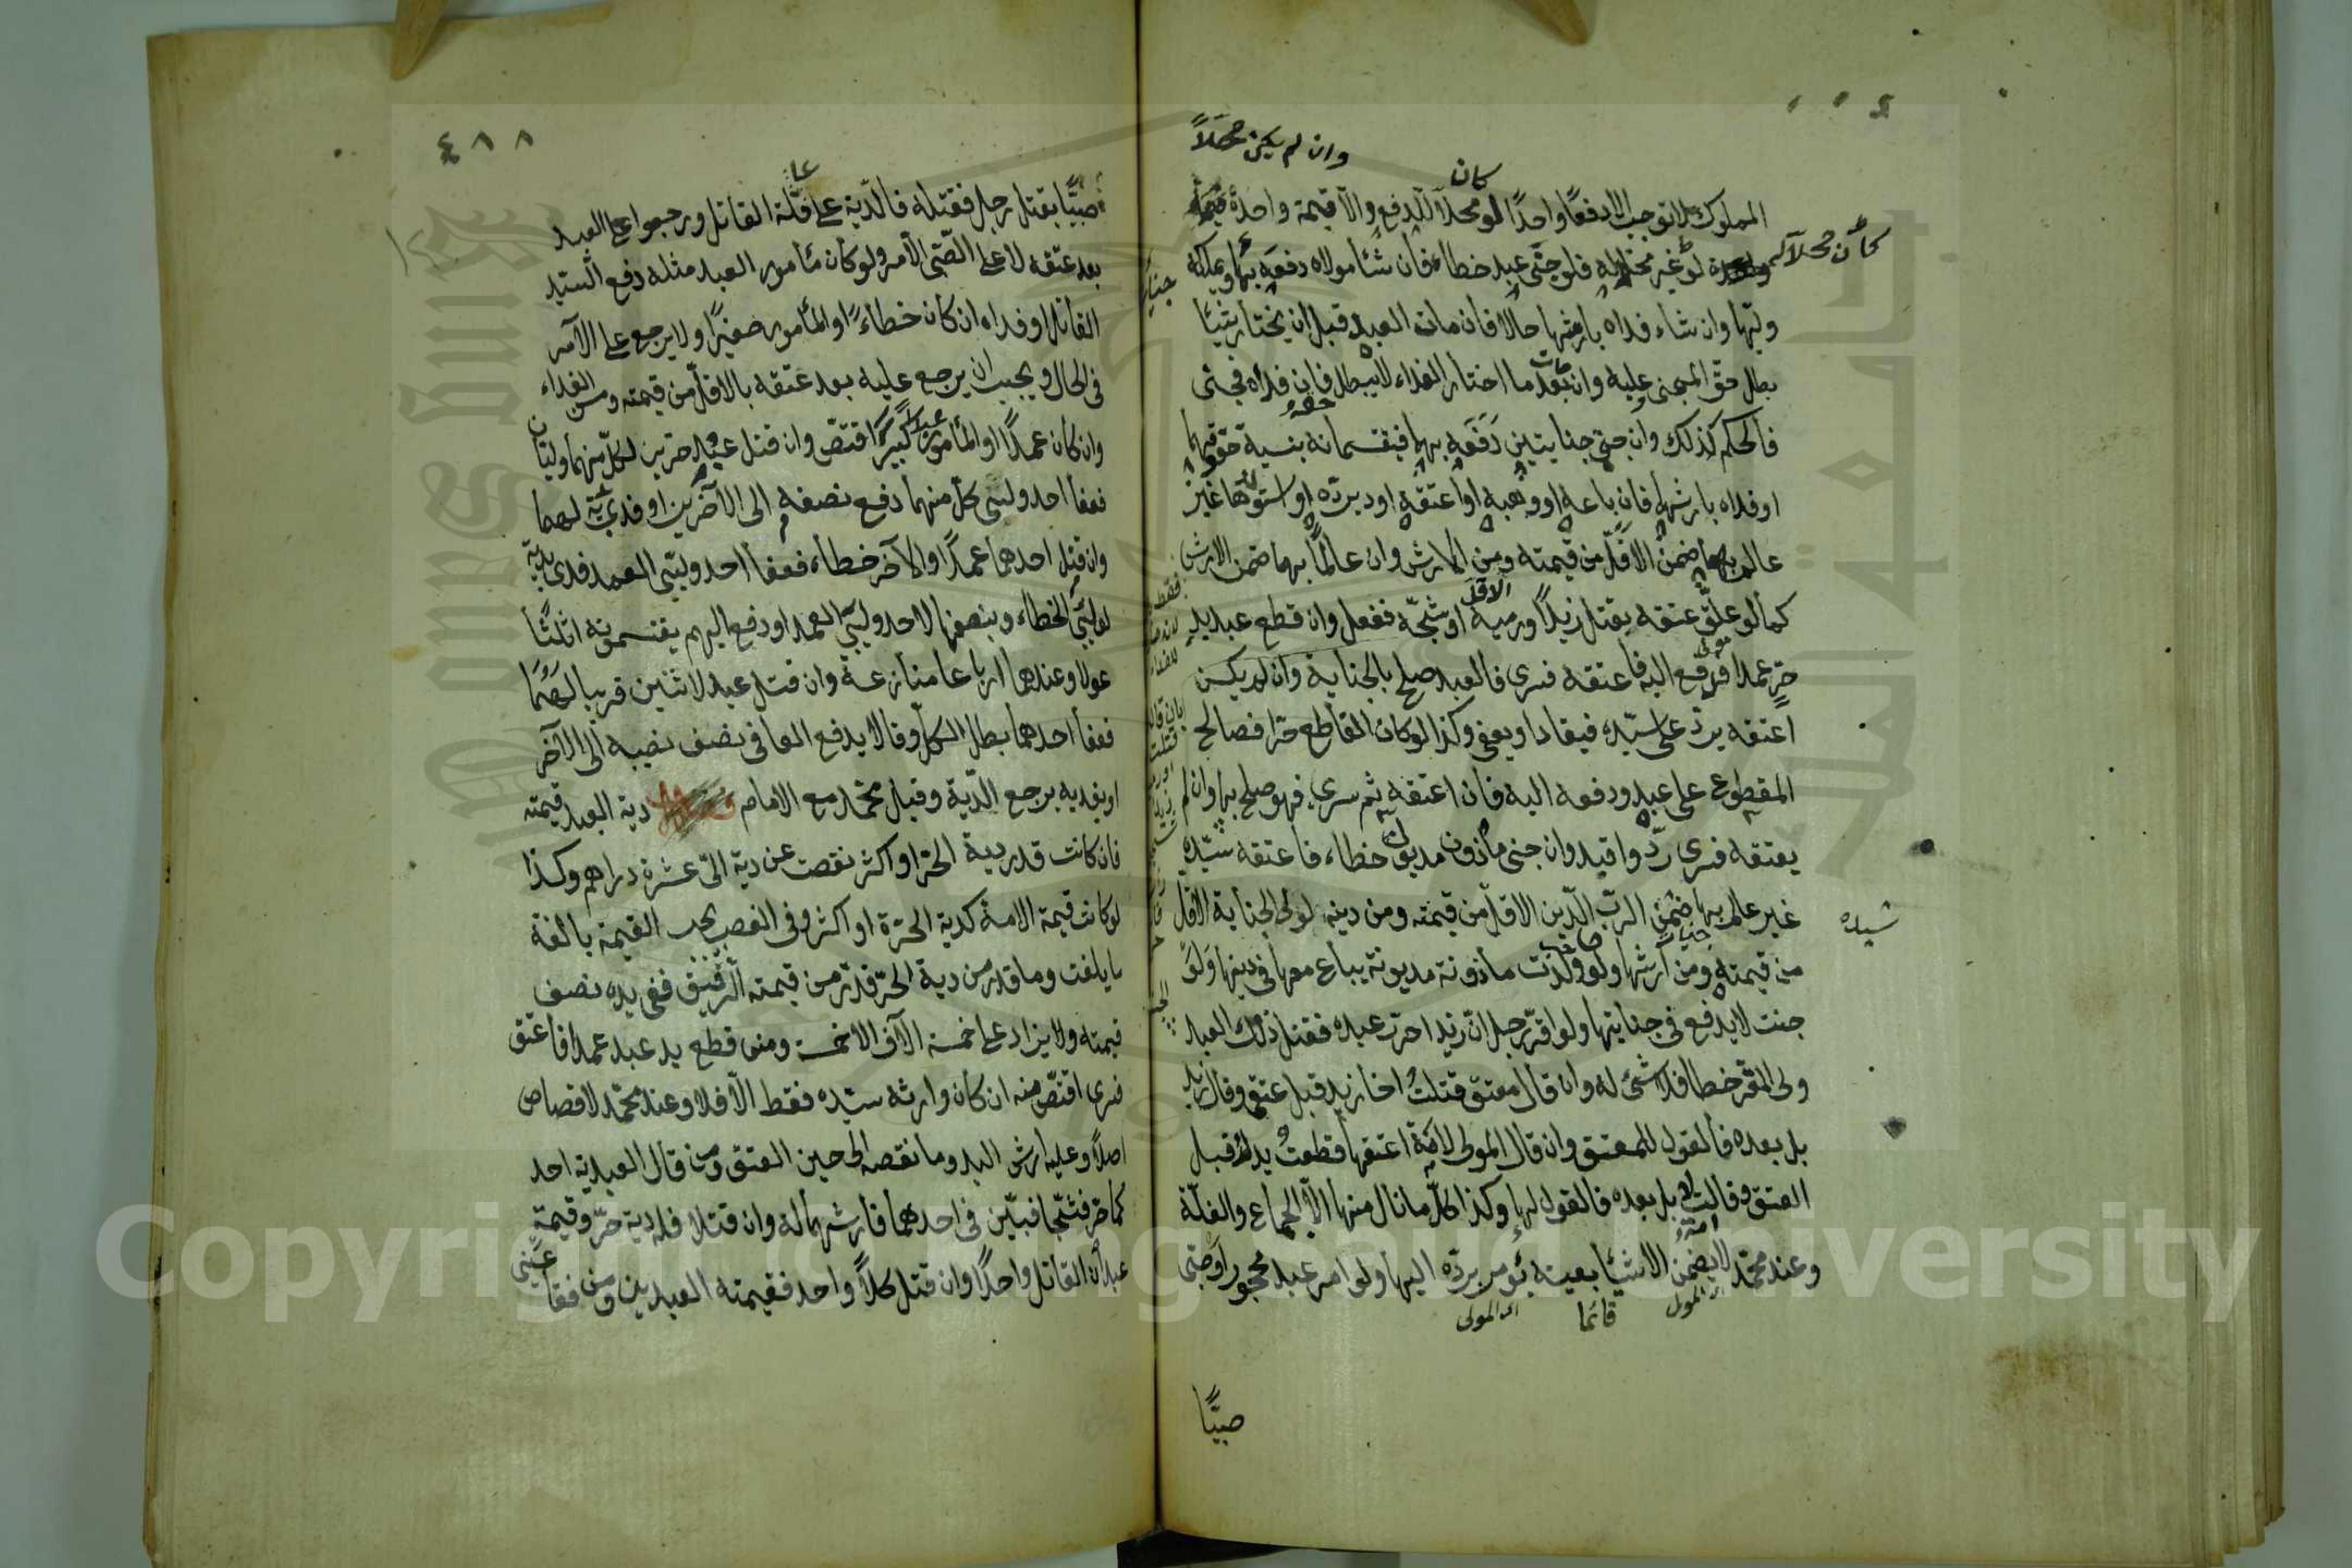 وان لم يكن محلاً
كان
المملوك لا توجب الا دفعًا واحدًا لو محلاً للدفع والا قيمة واحدة
كان محلاً
لو غير محل له فلو جنى عبد خطاء فان شاء مولاه دفعه بها ويملكه
وليها وان شاء فداه بارشها حالا فان مات العبد قبل ان يختار شيئا
بطل حق المجنى عليه وان بعد ما اختار الفداء لا يبطل فان فداه فجنى
فالحكم كذلك وان جنى جنايتين دفعه بهما فيقتسمانه بنسبة حقوقهما
او فداه بارشهما فان باعه او وهبه او اعتقه او دبره او استولدها غير
عالم بها ضمن الاقل من قيمته ومن الارش وان عالماً بها ضمن الارش
كما لو علق عتقه بقتل زيد او رميه او شجه ففعل وان قطع عبد يد
حر عمدا ودفع اليه فاعتقه فسرى فالعبد صلح بالجناية وان لم يكن
اعتقه يرد على سيده فيقاد او يعفى وكذا لو كان القاطع حرا فصالح
المقطوع على عبد ودفعه اليه فان اعتقه ثم سرى فهو صلح بها وان لم
يعتقه فسرى رد واقيد وان جنى مأذون مديون خطاء فاعتقه سيده
غير عالم بها ضمن لرب الدين الاقل من قيمته ومن دينه لولى الجناية الاقل
سيده
من قيمته ومن ارشها ولو ولدت مأذونة مديونة يباع معها فى دينها ولو
جنت لا يدفع فى جنايتها ولو اقر رجل ان زيدا حرر عبده فقتل ذلك العبد
ولى المقر خطا فلا شئ له وان قال معتق قتلت اخا زيد قبل عتقى وقال زيد
بل بعده فالقول للمعتق وان قال المولى لامة اعتقها قطعت يدك قبل
العتق وقالت بل بعده فالقول لها وكذا كل ما نال منها الا الجماع والغلة
وعند محمد لا يضمن الا شيئا بعينه يؤمر برده اليها ولو امر عبد محجور او صبى
اى المولى
قائما
اى المولى
صبيًّا
٤٨٨
صبيًّا بقتل رجل فقتله فالدية على عاقلة القاتل ورجعوا على العبد
بعد عتقه لا على الصبى الآمر ولو كان مأمور العبد مثله دفع السيد
القاتل او فداه ان كان خطاءً او المأمور صغيرًا ولا يرجع على الآمر
فى الحال ويجب ان يرجع عليه بعد عتقه بالاقل من قيمته ومن الفداء
وان كان عمدًا او المأمور كبيرًا اقتص وان قتل عبد حرين لكل منهما وليان
فعفا احد وليى كل منهما دفع نصفه الى الآخرين او فدى بدية لهما
وان قتل احدهما عمدًا والآخر خطاء فعفا احد وليى العمد فدى بدية
لوليى الخطاء وبنصفها لاحد وليى العمد او دفع اليهم يقتسمونه اثلاثا
عولا وعندهما ارباعا منازعة وان قتل عبد لاثنين قريبا لهما
فعفا احدهما بطل الكل وقالا يدفع العافى نصف نصيبه الى الآخر
او يفديه بربع الدية وقيل محمد مع الامام دية العبد قيمته
فان كانت قدر دية الحر او اكثر نقصت عن دية الحر عشرة دراهم وكذا
لو كانت قيمة الامة كدية الحرة او اكثر وفى الغصب يجب القيمة بالغة
ما بلغت وما قدر من دية الحر قدر من قيمته الرقيق ففى يده نصف
قيمته ولا يزاد على خمسة الآف الا خمسة ومن قطع يد عبد عمدا فاعتق
فسرى اقتص منه ان كان وارثه سيده فقط الا فلا وعند محمد لا قصاص
اصلاً وعليه ارش اليد وما نقصه الى حين العتق ومن قال لعبديه احد
كما حر فشجا فبين فى احدهما فارشهما له وان قتلا فله دية حر وقيمة
عبد ان القاتل واحدًا وان قتل كلاً واحد فقيمة العبدين ومن فقا عينى